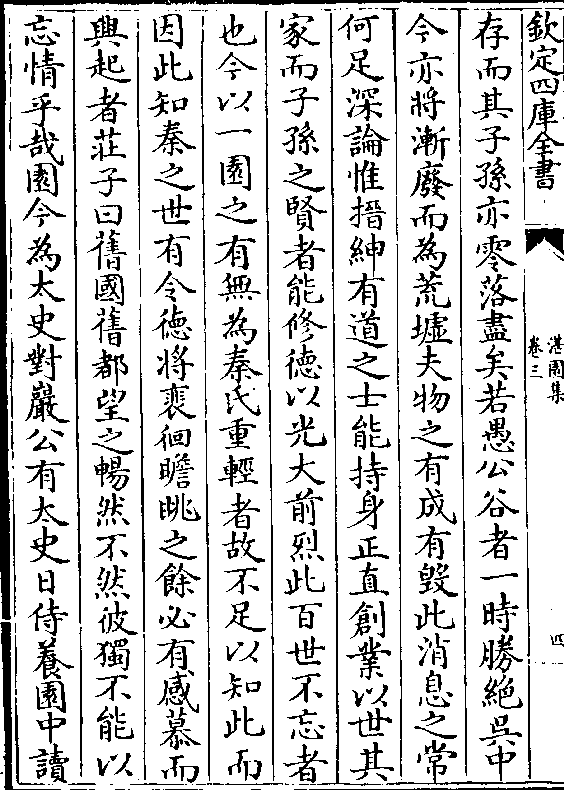 欽定四庫全書
湛園集
卷三
四
存而其子孫亦零落盡矣若愚公谷者一時勝絶呉中
今亦將漸廢而為荒墟夫物之有成有毀此消息之常
何足深論惟搢紳有道之士能持身正直創業以世其
家而子孫之賢者能修德以光大前烈此百世不忘者
也今以一園之有無為秦氏重輕者故不足以知此而
因此知秦之世有令徳將裵徊瞻眺之餘必有感慕而
興起者莊子曰舊國舊都望之暢然不然彼獨不能以
忘情乎哉園今為太史對巖公有太史日侍養園中讀